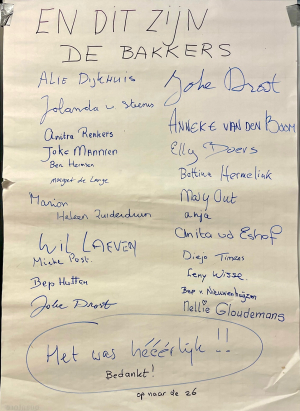 EN DIT ZIJN
DE BAKKERS
ALIE DIJKHUIS
Joke Drost
Jolanda v.
ANNEKE VAN DEN BOOM
Anita Renkers
Elly Doers
Joke Mannren
Ben Hermsen
Bettina Hermelink
Margot de Lange
Mary Out
Marion
anja
Heleen Zuiderduin
Anita vd Eshof
WIL LAEVEN
Mieke Post.
Diejo Timers
Leny Wisse
Bep Hutten
Bep v. Nieuwenhuijzen
Joke Drost
Nellie Gloudemans
Het was hééérlijk!!
Bedankt!
op naar de 26